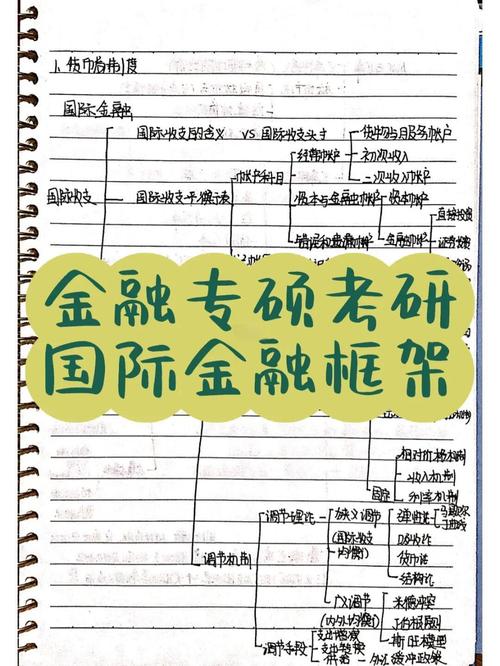 1. 货币局制度
国际金融
国际收支的含义 VS 国际收支头寸
货物与服务帐户
经常帐户
初次收入
二次收入帐户
国际收支
国际收支平衡表
帐户科目
资本与金融帐户
资本帐户
金融帐户
直接投资
证券投资
错误和遗漏帐户
金融专硕考研
国际金融框架
相对价格机制
收入机制
利率机制
固定
调节机制
调节理论
狭义调节
(国际收支
均衡)
弹性论
马歇尔
吸收论
货币论
结构论
广义调节
(内外均衡)
米德冲突
丁伯根原则
斯旺模型
调节手段
支出增减
支出转换
供给
外汇缓冲政策